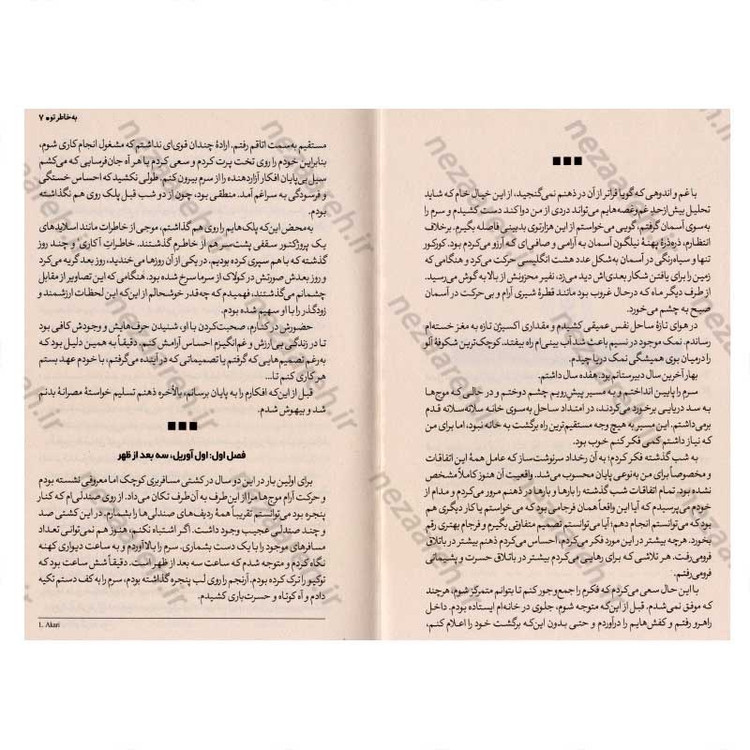 ■■■
با غم و اندوهی که گویا فراتر از آن در ذهنم نمی‌گنجید، از این خیال خام که شاید
تحلیل بیش از حدِ غم و غصه‌هایم می‌تواند دردی از من دوا کند دست کشیدم و سرم را
به‌سوی آسمان گرفتم، گویی می‌خواستم از این هزارتوی بدبینی فاصله بگیرم. برخلاف
انتظارم، ذره‌ذرهٔ پهنهٔ نیلگون آسمان به آرامی و صافی‌ای که آرزو می‌کردم بود. کورکور
تنها و سیاه‌رنگی در آسمان به‌شکل عدد هشت انگلیسی حرکت می‌کرد و هنگامی که
زمین را برای یافتن شکار بعدی‌اش دید می‌زد، نفیر محزونش از بالا به گوش می‌رسید.
از طرف دیگر ماه که درحال غروب بود مانند قطرهٔ شیری آرام و بی‌حرکت در آسمان
صبح به چشم می‌خورد.
در هوای تازهٔ ساحل نفس عمیقی کشیدم و مقداری اکسیژن تازه به مغز خسته‌ام
رساندم. نمک موجود در نسیم باعث شد آب بینی‌ام راه بیفتد. کوچک‌ترین شکوفهٔ آلو
را درمیان بوی همیشگی نمک دریا چیدم.
بهار آخرین سال دبیرستانم بود. هفده سال داشتم.
سرم را پایین انداختم و به مسیر پیش‌رویم چشم دوختم و در حالی که موج‌ها
به سد دریایی برخورد می‌کردند، در امتداد ساحل به‌سوی خانه سلانه‌سلانه قدم
برمی‌داشتم. این مسیر به هیچ وجه مستقیم‌ترین راه برگشت به خانه نبود، اما برای من
که نیاز داشتم کمی فکر کنم خوب بود.
به شب گذشته فکر کردم؛ به آن رخداد سرنوشت‌ساز که عامل همهٔ این اتفاقات
و مخصوصاً برای من به‌نوعی پایان محسوب می‌شد. واقعیت آن هنوز کاملاً مشخص
نشده بود. تمام اتفاقات شب گذشته را بارها و بارها در ذهنم مرور می‌کردم و مدام از
خودم می‌پرسیدم که آیا این واقعاً همان فرجامی بود که می‌خواستم یا کار دیگری هم
بود که می‌توانستم انجام دهم؛ آیا می‌توانستم تصمیم متفاوتی بگیرم و فرجام بهتری رقم
بخورد. هرچه بیشتر در این مورد فکر می‌کردم، احساس می‌کردم ذهنم بیشتر در باتلاق
فرومی‌رفت. هر تلاشی که برای رهایی می‌کردم بیشتر در باتلاق حسرت و پشیمانی
فرومی‌رفتم.
با این حال سعی می‌کردم که فکرم را جمع‌وجور کنم تا بتوانم متمرکز شوم، هرچند
که موفق نمی‌شدم. قبل از آن‌که متوجه شوم، جلوی در خانه‌ام ایستاده بودم. داخل
راهرو رفتم و کفش‌هایم را درآوردم و حتی بدون این‌که برگشت خود را اعلام کنم،
به خاطر تو ● ۷
مستقیم به‌سمت اتاقم رفتم. ارادهٔ چندان قوی‌ای نداشتم که مشغول انجام کاری شوم،
بنابراین خودم را روی تخت پرت کردم و سعی کردم با هر آه جان‌فرسایی که می‌کشم
سیل بی‌پایان افکار آزاردهنده را از سرم بیرون کنم. طولی نکشید که احساس خستگی
و فرسودگی به سراغم آمد. منطقی بود، چون از دو شب قبل پلک روی هم نگذاشته
بودم.
به محض این‌که پلک‌هایم را روی هم گذاشتم، موجی از خاطرات مانند اسلایدهای
یک پروژکتور سقفی پشت‌سر هم از خاطرم گذشتند. خاطراتِ آکاری¹ و چند روز
گذشته که با هم سپری کرده بودیم. در یکی از آن روزها می‌خندید، روز بعد گریه می‌کرد
و روز بعدش صورتش در کولاک از سرما سرخ شده بود. هنگامی که این تصاویر از مقابل
چشمانم می‌گذشتند، فهمیدم که چه‌قدر خوشحالم از این‌که این لحظات ارزشمند و
زودگذر را با او سهیم شده بودم.
حضورش در کنارم، صحبت‌کردن با او، شنیدن حرف‌هایش و وجودش کافی بود
تا در زندگی بی‌ارزش و غم‌انگیزم احساس آرامش کنم. دقیقاً به همین دلیل بود که
به‌رغم تصمیم‌هایی که گرفتم یا تصمیماتی که در آینده می‌گرفتم، با خودم عهد بستم
هر کاری کنم تا...
قبل از این‌که افکارم را به پایان برسانم، بالأخره ذهنم تسلیم خواستهٔ مصرانهٔ بدنم
شد و بیهوش شدم.
■■■
فصل اول: اول آوریل، سه بعد از ظهر
برای اولین بار در این دو سال در کشتی مسافربری کوچک اما معروفی نشسته بودم
و حرکت آرام موج‌ها مرا از این طرف به آن طرف تکان می‌داد. از روی صندلی‌ام که کنار
پنجره بود می‌توانستم تقریباً همهٔ ردیف‌های صندلی‌ها را بشمارم. در این کشتی صد
و چند صندلی عجیب وجود داشت. اگر اشتباه نکنم، هنوز هم نمی‌توانی تعداد
مسافرهای موجود را با یک دست بشماری. سرم را بالا آوردم و به ساعت دیواری کهنه
نگاه کردم و متوجه شدم که ساعت سه بعد از ظهر است. دقیقاً شش ساعت بود که
توکیو را ترک کرده بودم. آرنجم را روی لب پنجره گذاشته بودم، سرم را به کف دستم تکیه
دادم و آه کوتاه و حسرت‌باری کشیدم.
1. Akari
nezaareh.ir